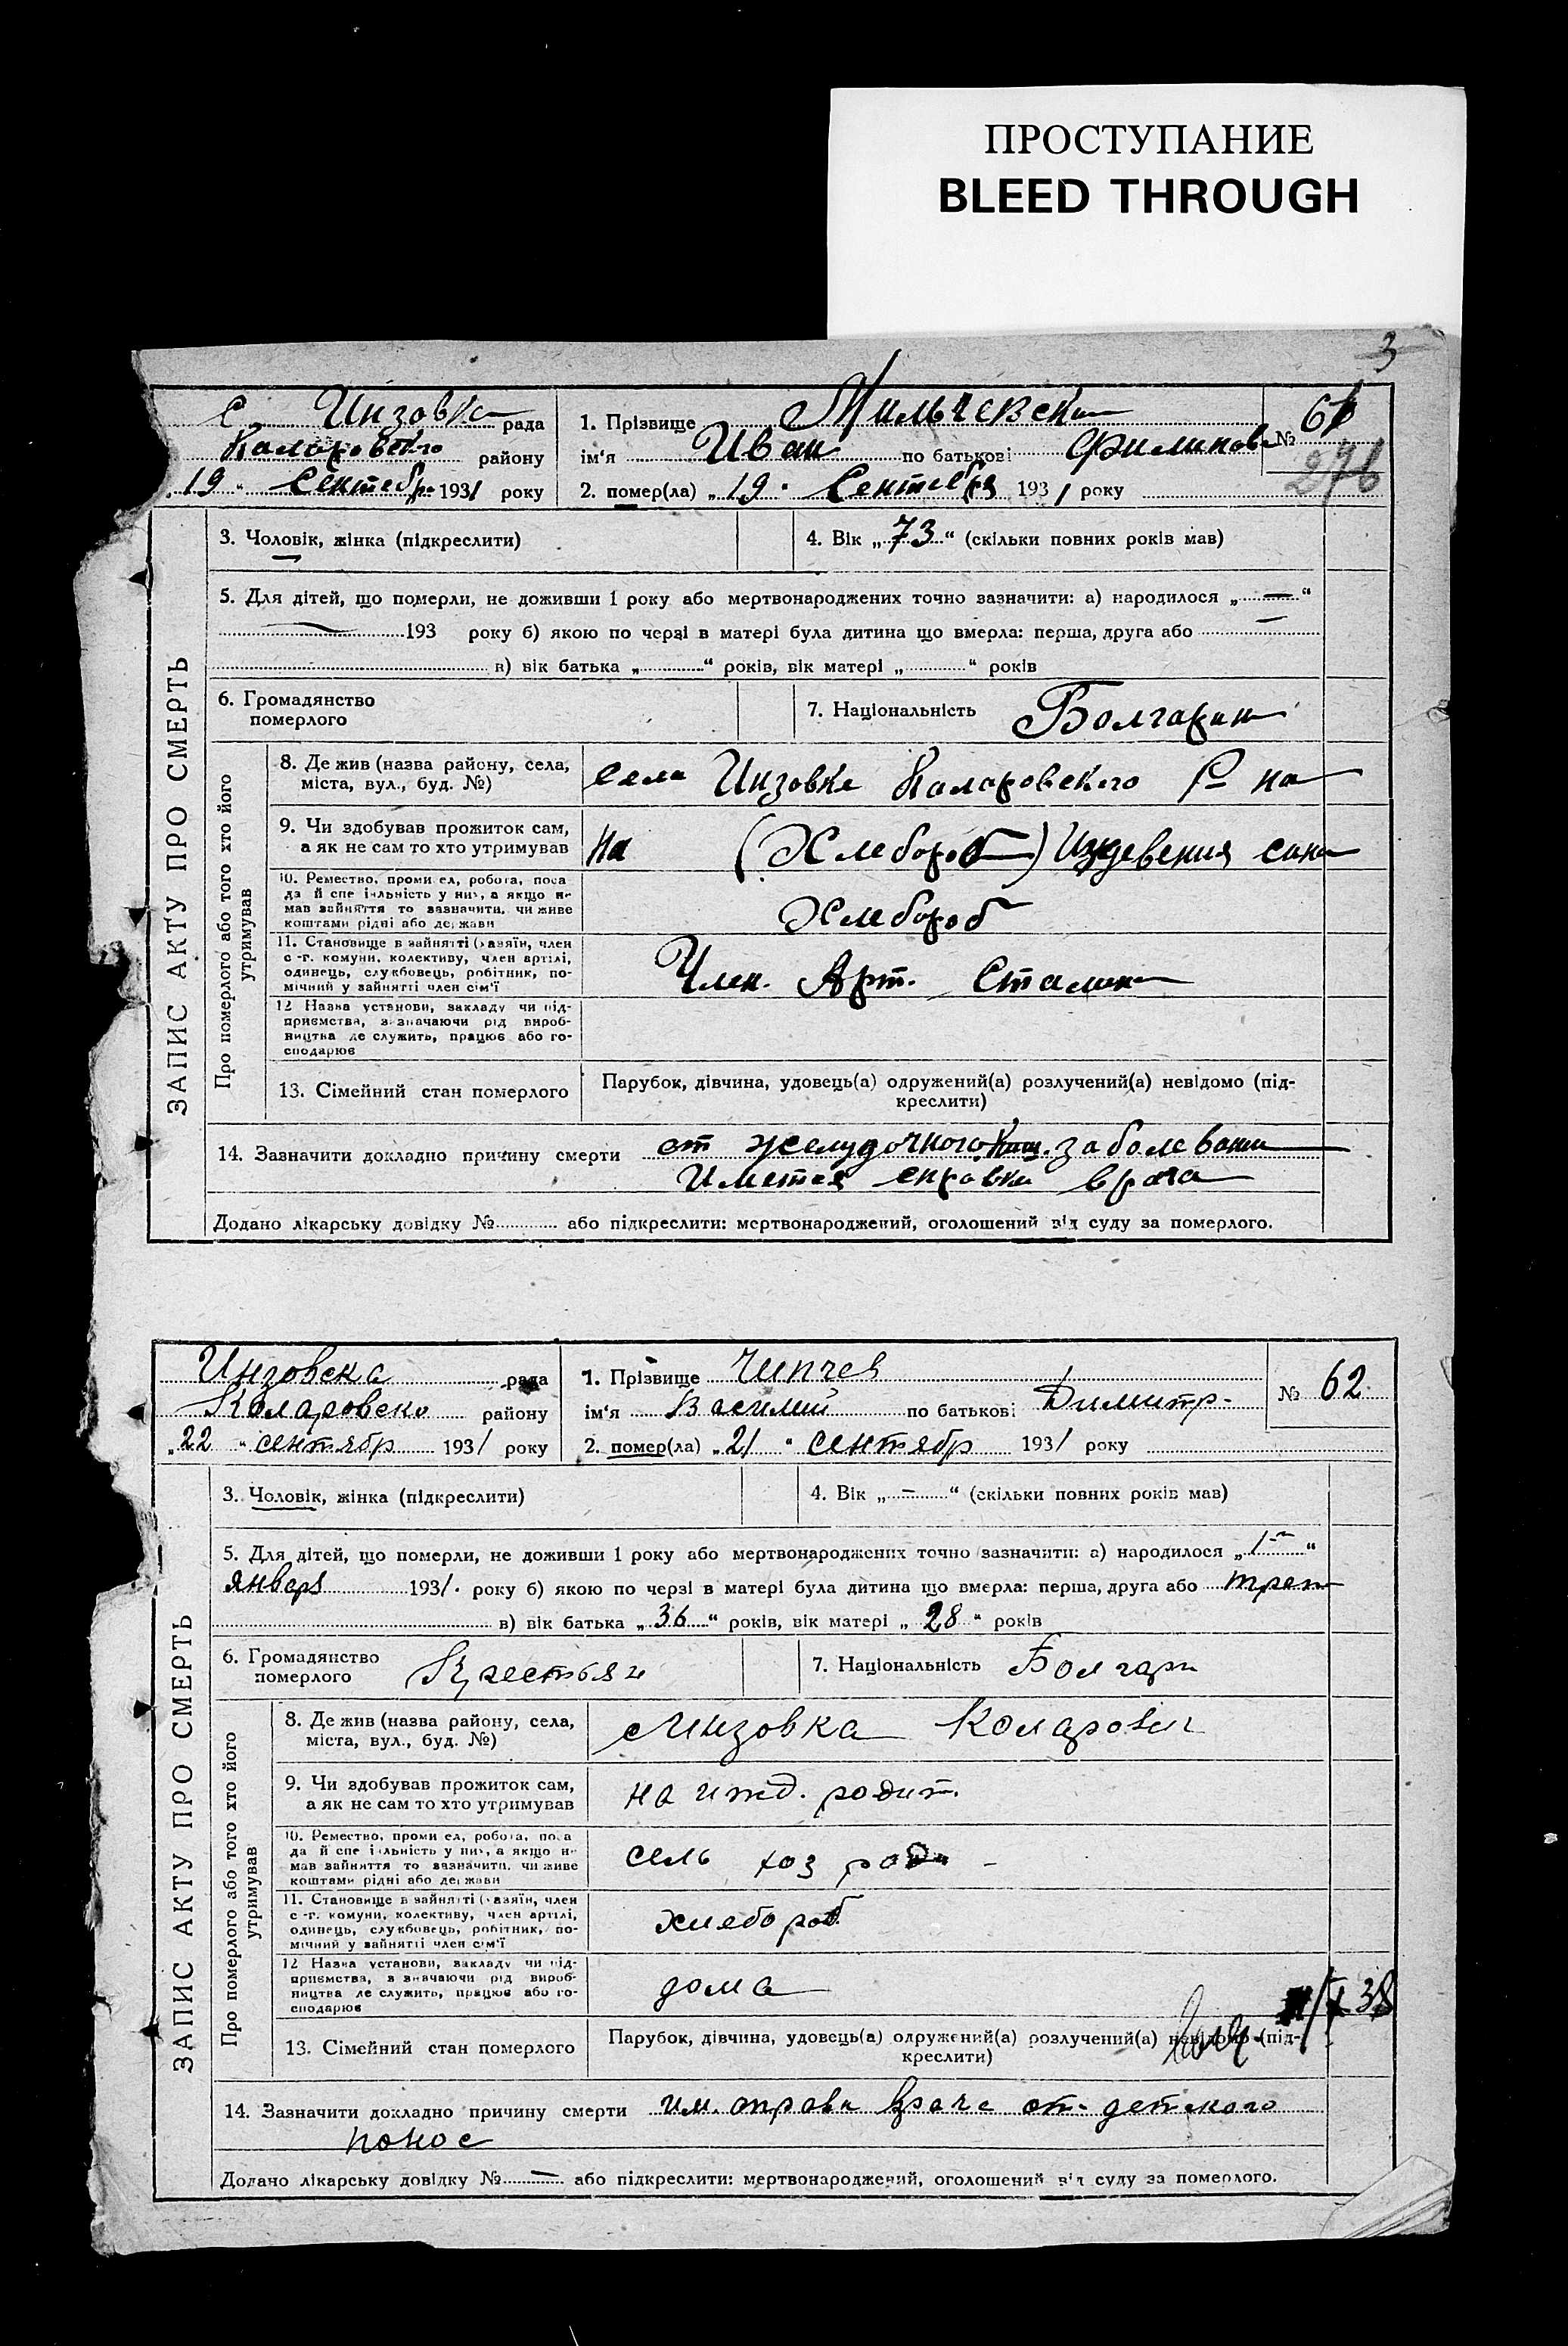 ПРОСТУПАНИЕ
BLEED THROUGH
3
с. Инзовка рада
Коларовского району
„19“ Сентебр. 1931 року
1. Прізвище Мильчевски
ім'я Иван по батькові Филипов
2. помер(ла) „19“ Сентебря 1931 року
№ 61
276
ЗАПИС АКТУ ПРО СМЕРТЬ
3. Чоловік, жінка (підкреслити)
4. Вік „73“ (скільки повних років мав)
5. Для дітей, що померли, не доживши 1 року або мертвонароджених точно зазначити: а) народилося „—“
193 року б) якою по черзі в матері була дитина що вмерла: перша, друга або —
в) вік батька „ “ років, вік матері „ “ років
6. Громадянство
померлого
7. Національність Болгарин
Про померлого або того хто його
утримував
8. Де жив (назва району, села,
міста, вул., буд. №)
села Инзовка Коларовского Р-на
9. Чи здобував прожиток сам,
а як не сам то хто утримував
На (Хлебороб) Иждевения сина
10. Ремество, проми ел, робота, поса
да й спе іяльність у них, а якщо не
мав зайняття то зазначити, чи живе
коштами рідні або держави
Хлебороб
11. Становище в зайнятті (хазяїн, член
с.-г. комуни, колективу, член артілі,
одинець, службовець, робітник, по-
мічний у зайнятті член сім'ї
Член. Арт. Сталин
12 Назва установи, закладу чи під-
приємства, зазначаючи рід вироб-
ництва де служить, працює або го-
сподарює
13. Сімейний стан померлого
Парубок, дівчина, удовець(а) одружений(а) розлучений(а) невідомо (під-
креслити)
14. Зазначити докладно причину смерти от желудочного киш. заболевани
Иметея справки врача
Додано лікарську довідку № або підкреслити: мертвонароджений, оголошений від суду за померлого.
Инзовска рада
Коларовско району
„22“ сентябр 1931 року
1. Прізвище Чипчев
ім'я Василий по батькові Димитр.
2. помер(ла) „21“ сентябр 1931 року
№ 62
ЗАПИС АКТУ ПРО СМЕРТЬ
3. Чоловік, жінка (підкреслити)
4. Вік „—“ (скільки повних років мав)
5. Для дітей, що померли, не доживши 1 року або мертвонароджених точно зазначити: а) народилося „1“
январз 1931. року б) якою по черзі в матері була дитина що вмерла: перша, друга або трет
в) вік батька „36“ років, вік матері „28“ років
6. Громадянство
померлого Крестьян
7. Національність Болгари
Про померлого або того хто його
утримував
8. Де жив (назва району, села,
міста, вул., буд. №)
с Инзовка Коларовск
9. Чи здобував прожиток сам,
а як не сам то хто утримував
на ижд. родит.
10. Ремество, проми ел, робота, поса
да й спе іяльність у них, а якщо не
мав зайняття то зазначити, чи живе
коштами рідні або держави
сель хоз
11. Становище в зайнятті (хазяїн, член
с.-г. комуни, колективу, член артілі,
одинець, службовець, робітник, по-
мічний у зайнятті член сім'ї
хлебороб
12 Назва установи, закладу чи під-
приємства, зазначаючи рід вироб-
ництва де служить, працює або го-
сподарює
дома
13. Сімейний стан померлого
Парубок, дівчина, удовець(а) одружений(а) розлучений(а) невідомо (під-
креслити)
14. Зазначити докладно причину смерти им. справк врача от детского
понос
Додано лікарську довідку № — або підкреслити: мертвонароджений, оголошений від суду за померлого.